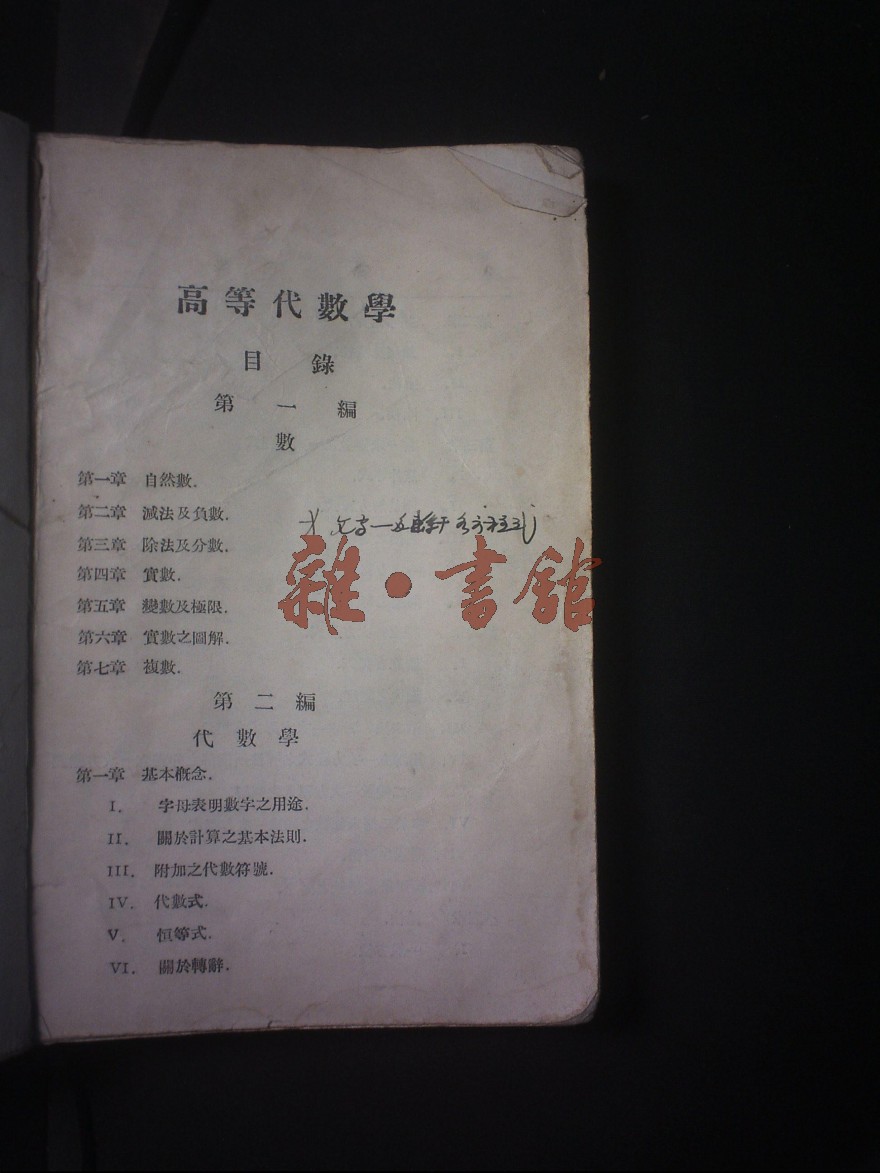 高等代數學
目錄
第一編
數
第一章 自然數.
第二章 減法及負數.
第三章 除法及分數.
第四章 實數.
第五章 變數及極限.
第六章 實數之圖解.
第七章 複數.
雜·書館
第二編
代數學
第一章 基本概念.
I. 字母表明數字之用途.
II. 關於計算之基本法則.
III. 附加之代數符號.
IV. 代數式.
V. 恒等式.
VI. 關於轉辭.